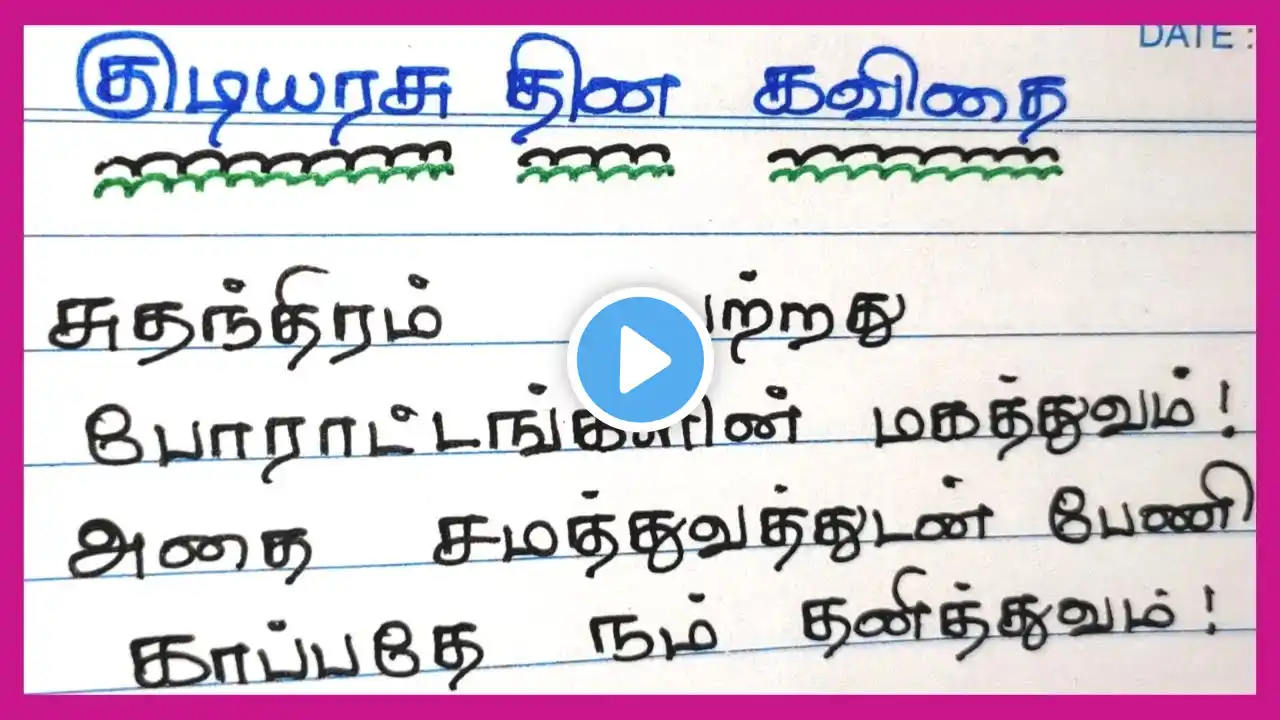 DATE :
குடியரசு தின கவிதை
சுதந்திரம் பெற்றது
போராட்டங்களின் மகத்துவம்!
அதை சமத்துவத்துடன் பேணி
காப்பதே நம் தனித்துவம்!